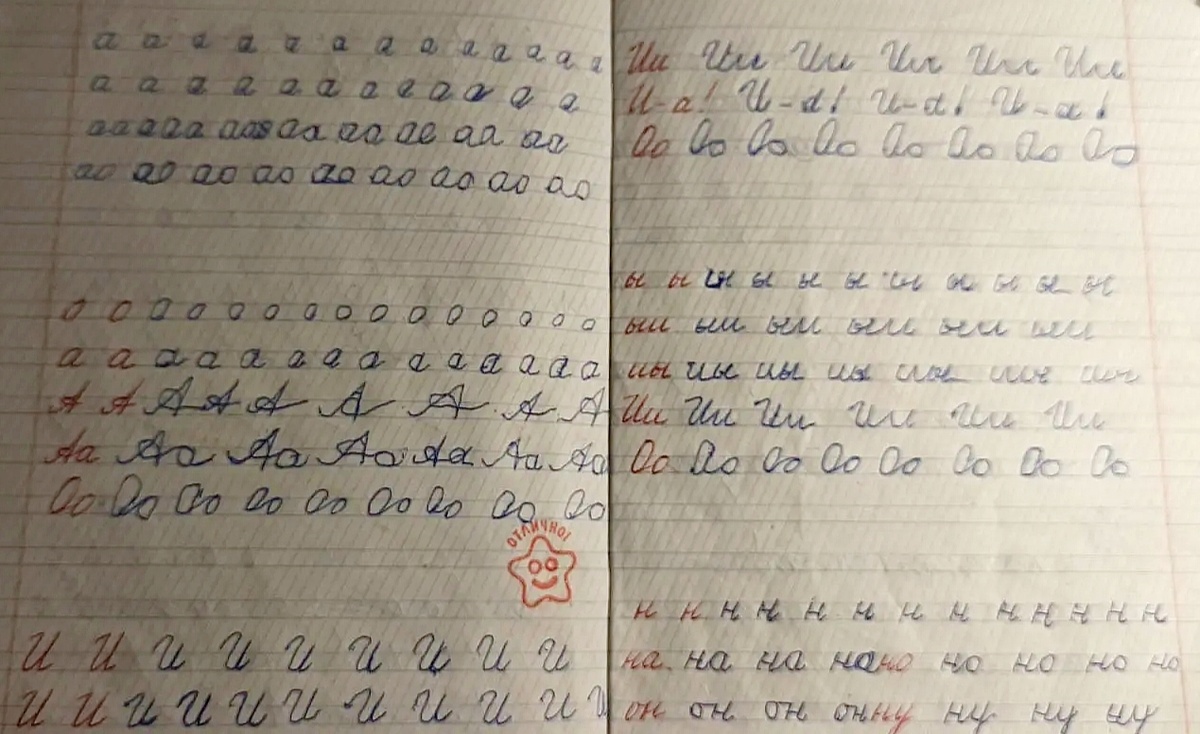 а а а а а а а а а а а а а
а а а а а а а а а а а а
аа аа аа аа аа аа аа аа
ао ао ао ао ао ао ао ао ао
о о о о о о о о о о о о о о о
а а а а а а а а а а а а а
А А А А А А А А А
Аа Аа Аа Аа Аа Аа Аа
Оо Оо Оо Оо Оо Оо Оо Оо Оо
ОТЛИЧНО!
И И И И И И И И И
И И И И И И И И И И И
Ии Ии Ии Ии Ии Ии
И-а! И-а! И-а! И-а!
Оо Оо Оо Оо Оо Оо Оо Оо
ы ы ы ы ы ы ы ы ы ы ы
ыи ыи ыи ыи ыи ыи
иы иы иы иы иы иы иы
Ии Ии Ии Ии Ии Ии
Оо Оо Оо Оо Оо Оо Оо Оо
н н н н н н н н н н н н н
на на на но но но но но но
он он он он ну ну ну ну